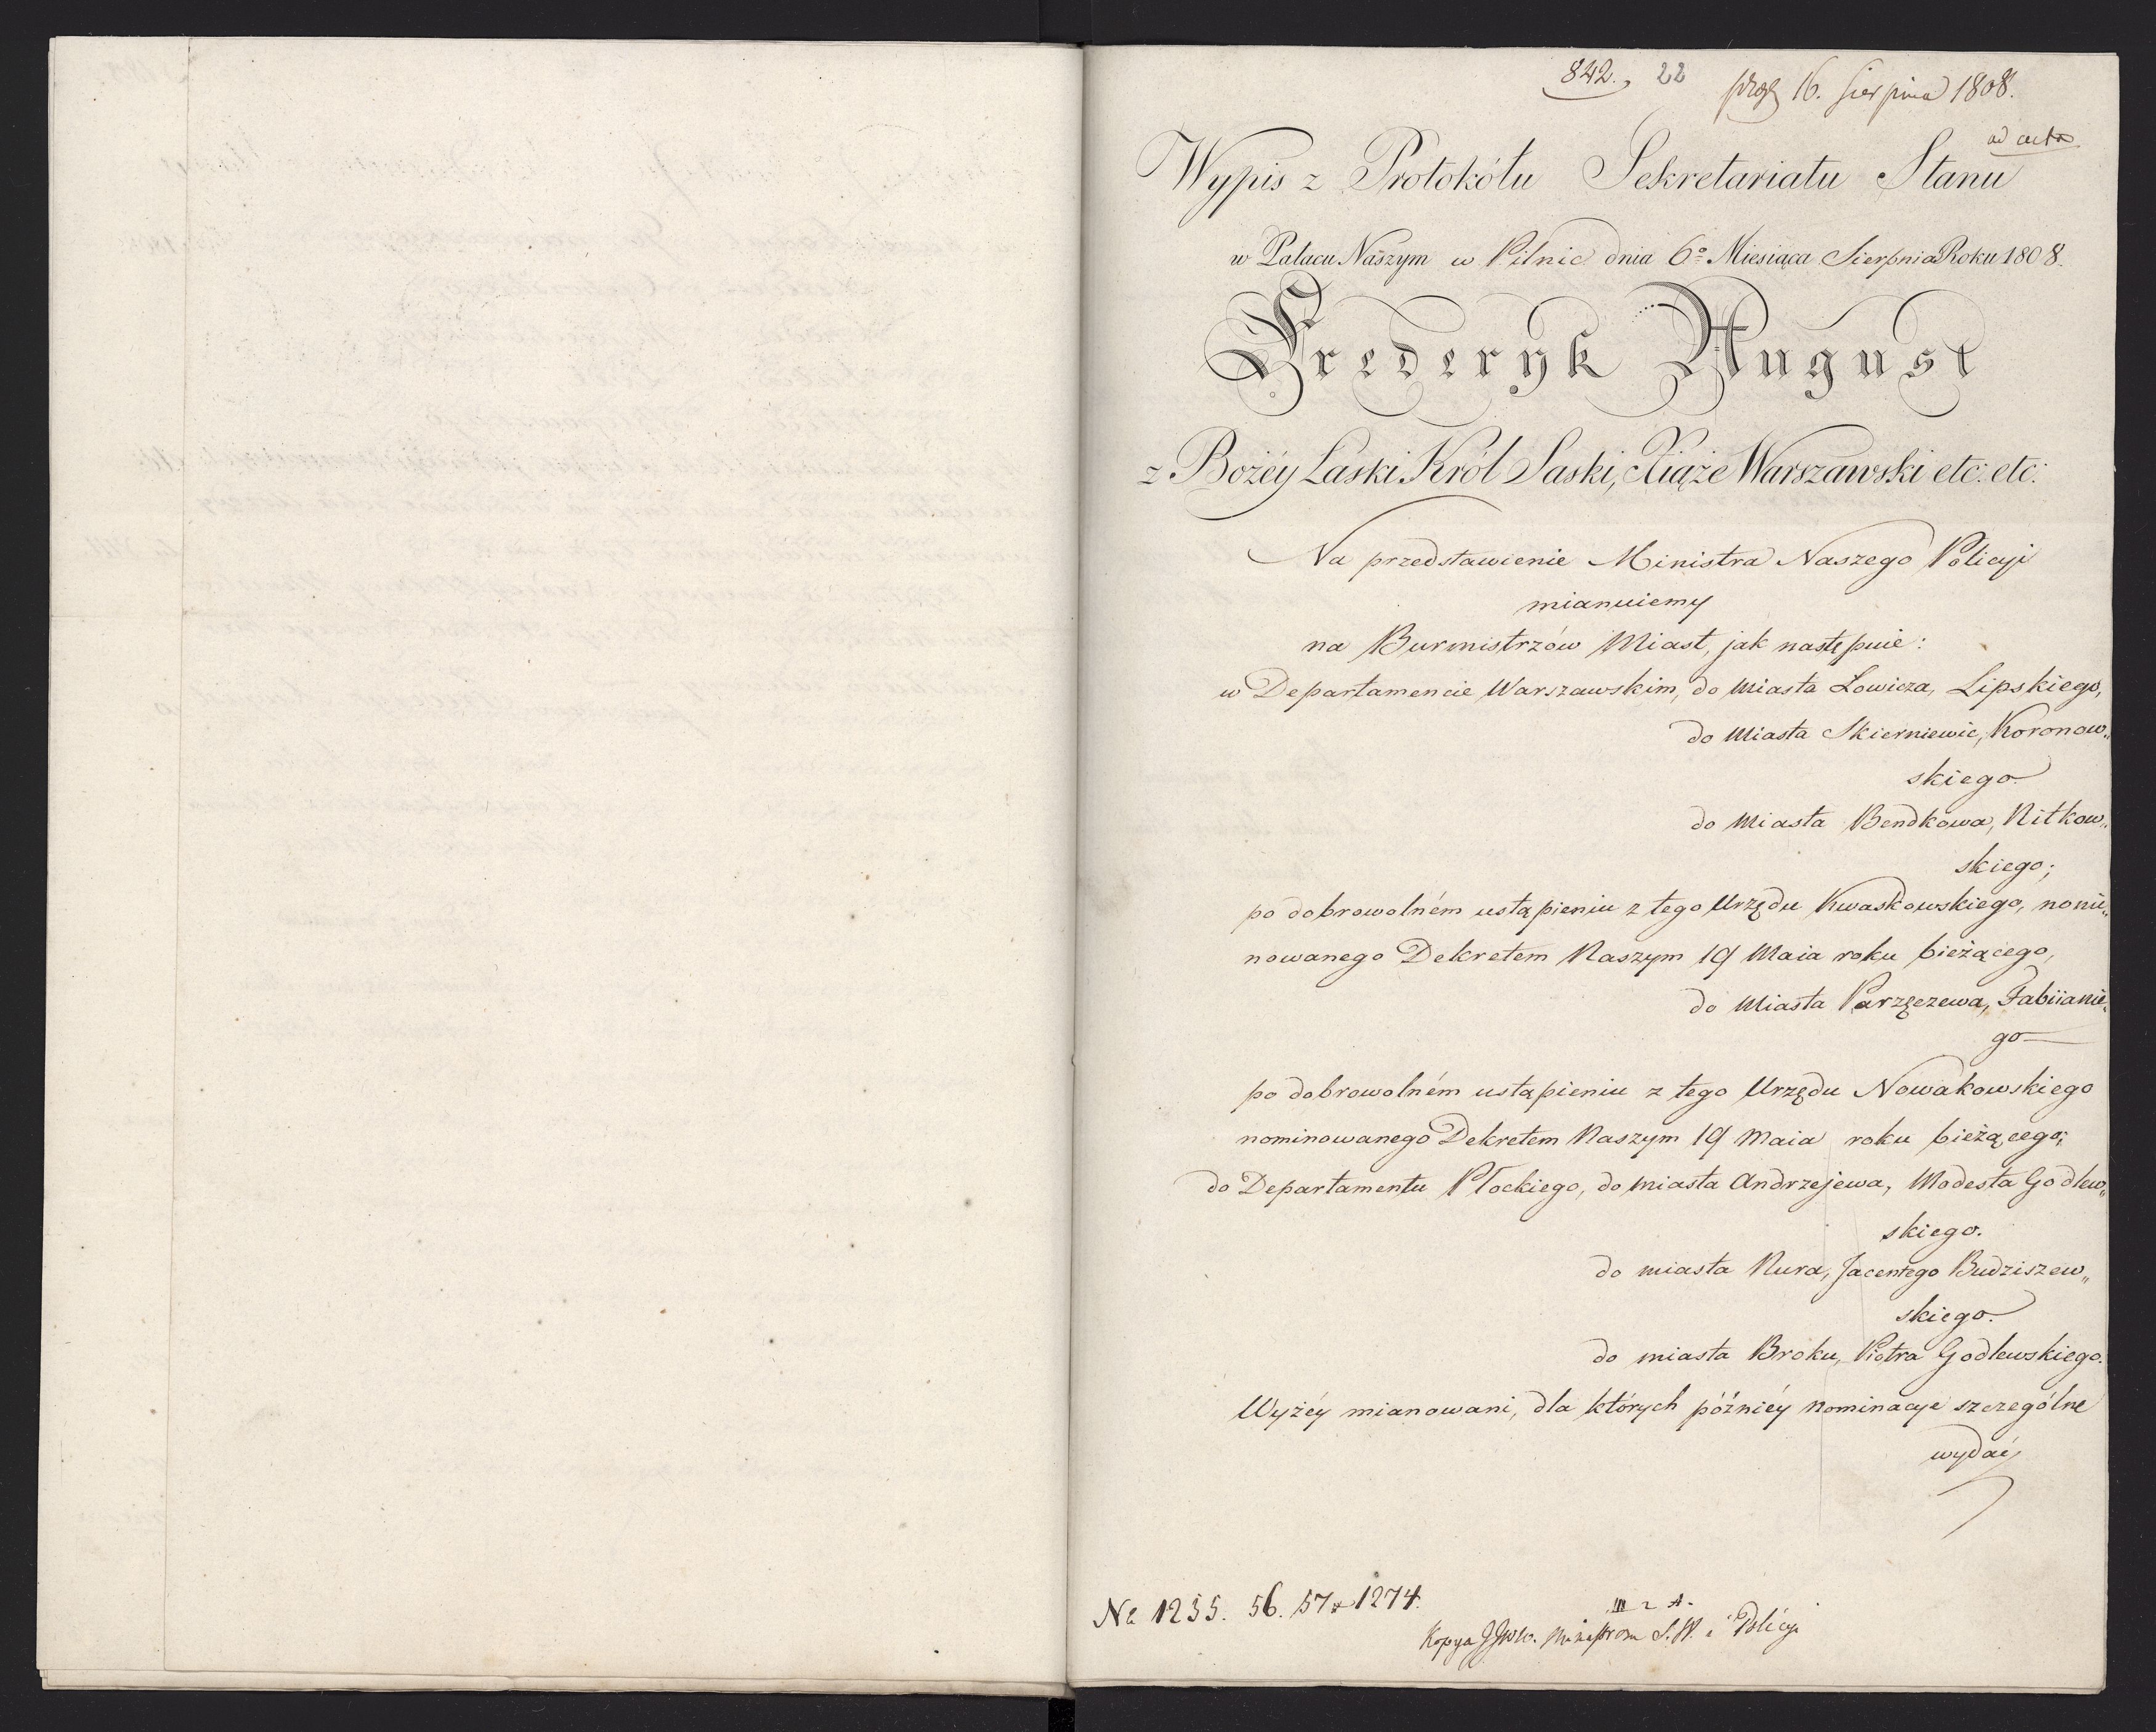 842. 22 prag 16. Sierpnia 1808.
ad acta
Wypis z Protokółu Sekretariatu Stanu
w Pałacu Naszym w Pilnic dnia 6º Miesiąca Sierpnia Roku 1808.
Frederyk August
z Bożéy Łaski Król Saski, Xiąże Warszawski etc: etc:
Na przedstawienie Ministra Naszego Policyi
mianuiemy
na Burmistrzów Miast, jak następuie:
w Departamencie Warszawskim, do Miasta Łowicza, Lipskiego,
do Miasta Skierniewic, Koronow„
skiego.
do Miasta Bendkowa, Nitkow„
skiego;
po dobrowolném ustąpieniu z tego Urzędu Kwaskowskiego, nomi„
nowanego Dekretem Naszym 19 Maia roku bieżącego,
do Miasta Parzęczewa, Fabiianie„
go
po dobrowolném ustąpieniu z tego Urzędu Nowakowskiego
nominowanego Dekretem Naszym 19 Maia roku bieżącego;
do Departamentu Płockiego, do miasta Andrzejewa, Modesta Godlew„
skiego.
do miasta Nura, Jacentego Budziszew„
skiego.
do miasta Broku, Piotra Godlewskiego.
Wyżéy mianowani, dla których późniéy nominacye szczególne
wydaéy
No 1255. 56. 57 1274.
III 2 A.
Kopya JJWW. Ministrom S. W. i Policyi